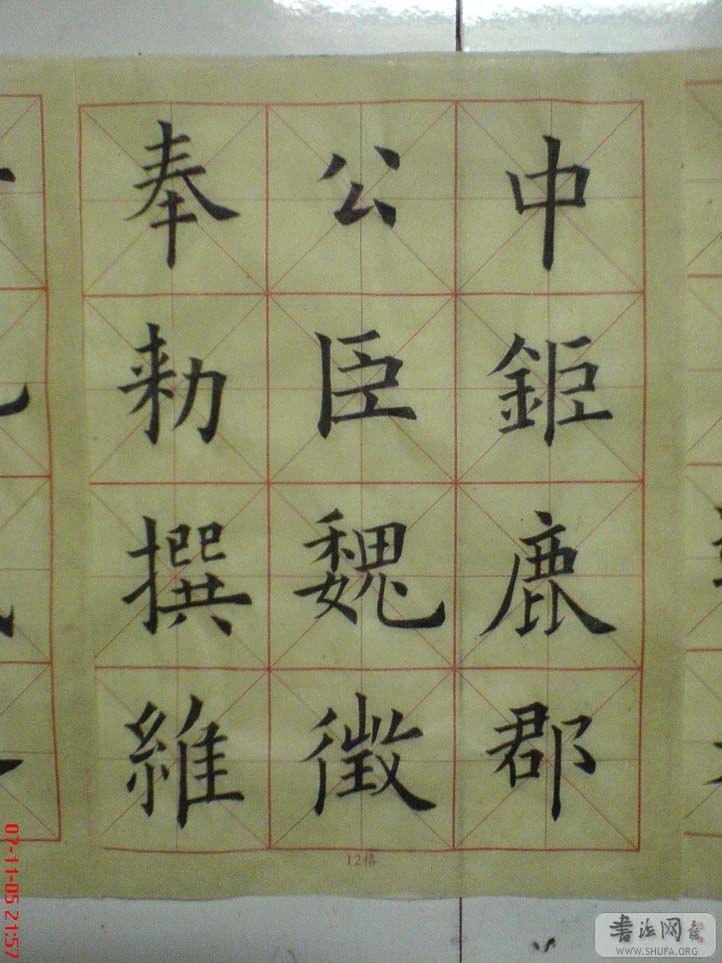 中鉅鹿郡
公臣魏徵
奉勑撰維
12格
07-11-05 21:57
书法网
WWW.SHUFA.ORG